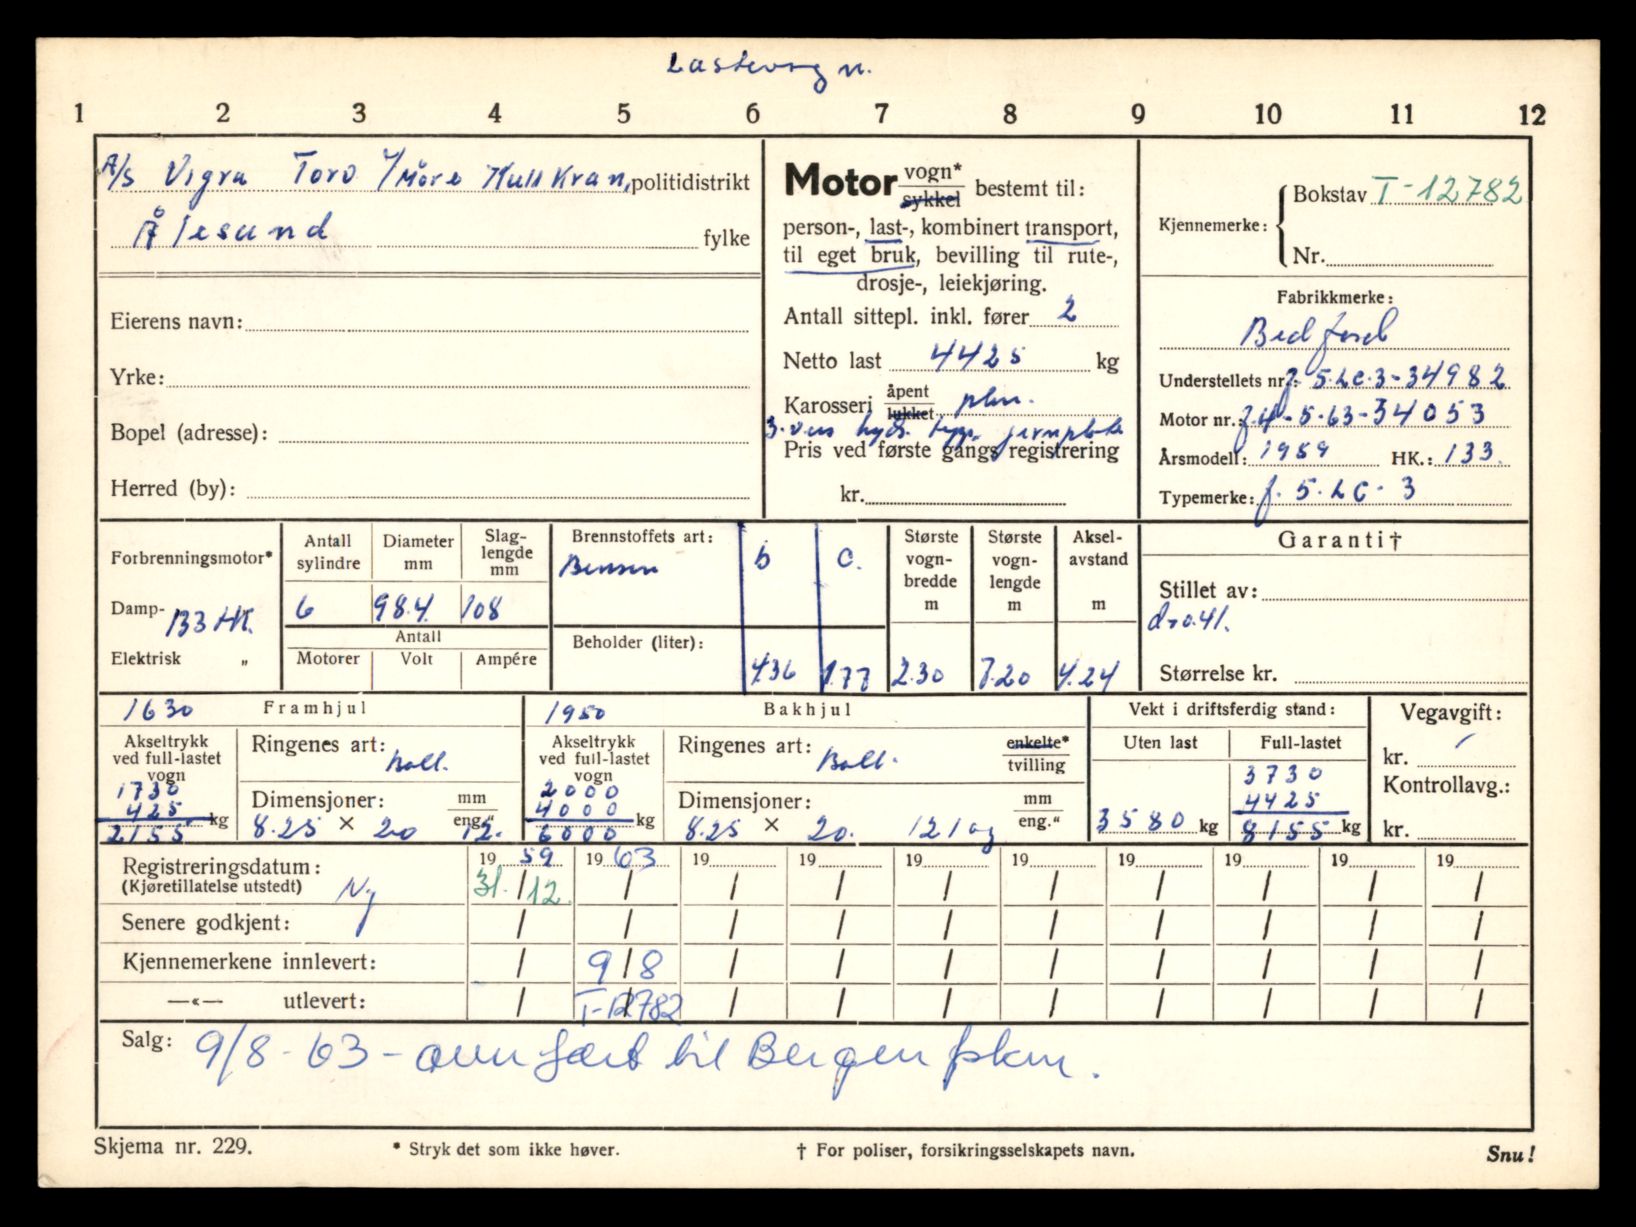 Lastevogn.
1 2 3 4 5 6 7 8 9 10 11 12
A/S Vigra Torv Møre Kull Kran, politidistrikt
Ålesund fylke
Eierens navn:
Yrke:
Bopel (adresse):
Herred (by):
Motor vogn* sykkel bestemt til:
person-, last-, kombinert transport,
til eget bruk, bevilling til rute-,
drosje-, leiekjøring.
Antall sittepl. inkl. fører 2
Netto last 4425 kg
Karosseri åpent lukket plan.
3-veis hydr. tipp. jernplate
Pris ved første gangs registrering
kr.
Kjennemerke: Bokstav T-12782
Nr.
Fabrikkmerke:
Bedford
Understellets nr. J. 5.LC.3-34982
Motor nr. J.4-5-63-34053
Årsmodell: 1959 HK.: 133.
Typemerke: J. 5. LC. 3
Forbrenningsmotor*
Damp- 133 HK. „
Elektrisk „
Antall sylindre 6
Diameter mm 98.4
Slag-lengde mm 108
Antall
Motorer Volt Ampére
Brennstoffets art: b c.
Bensin
Beholder (liter): 4.36 1.77
Største vogn-bredde m 2.30
Største vogn-lengde m 7.20
Aksel-avstand m 4.24
Garanti†
Stillet av:
Størrelse kr.
1630 Framhjul
Akseltrykk ved full-lastet vogn
1730
425
2155 kg
Ringenes art: Ball.
Dimensjoner: mm eng.“
8.25 × 20 12.
1950 Bakhjul
Akseltrykk ved full-lastet vogn
2000
4000
6000 kg
Ringenes art: Ball. enkelte* tvilling
Dimensjoner: mm eng.“
8.25 × 20. 12 lag
Vekt i driftsferdig stand:
Uten last Full-lastet
3730
4425
3580 kg 8155 kg
Vegavgift:
kr.
Kontrollavg.:
kr.
Registreringsdatum: 19 59 19 63 19 19 19 19 19 19 19 19
(Kjøretillatelse utstedt) Ny 31. / 12. / / / / / / / / /
Senere godkjent: / / / / / / / / / /
Kjennemerkene innlevert: / 9 / 8 / / / / / / / /
—«— utlevert: / T-12782 / / / / / / / /
Salg: 9/8-63 - overført til Bergen pkm.
Skjema nr. 229. * Stryk det som ikke høver. † For poliser, forsikringsselskapets navn. Snu!